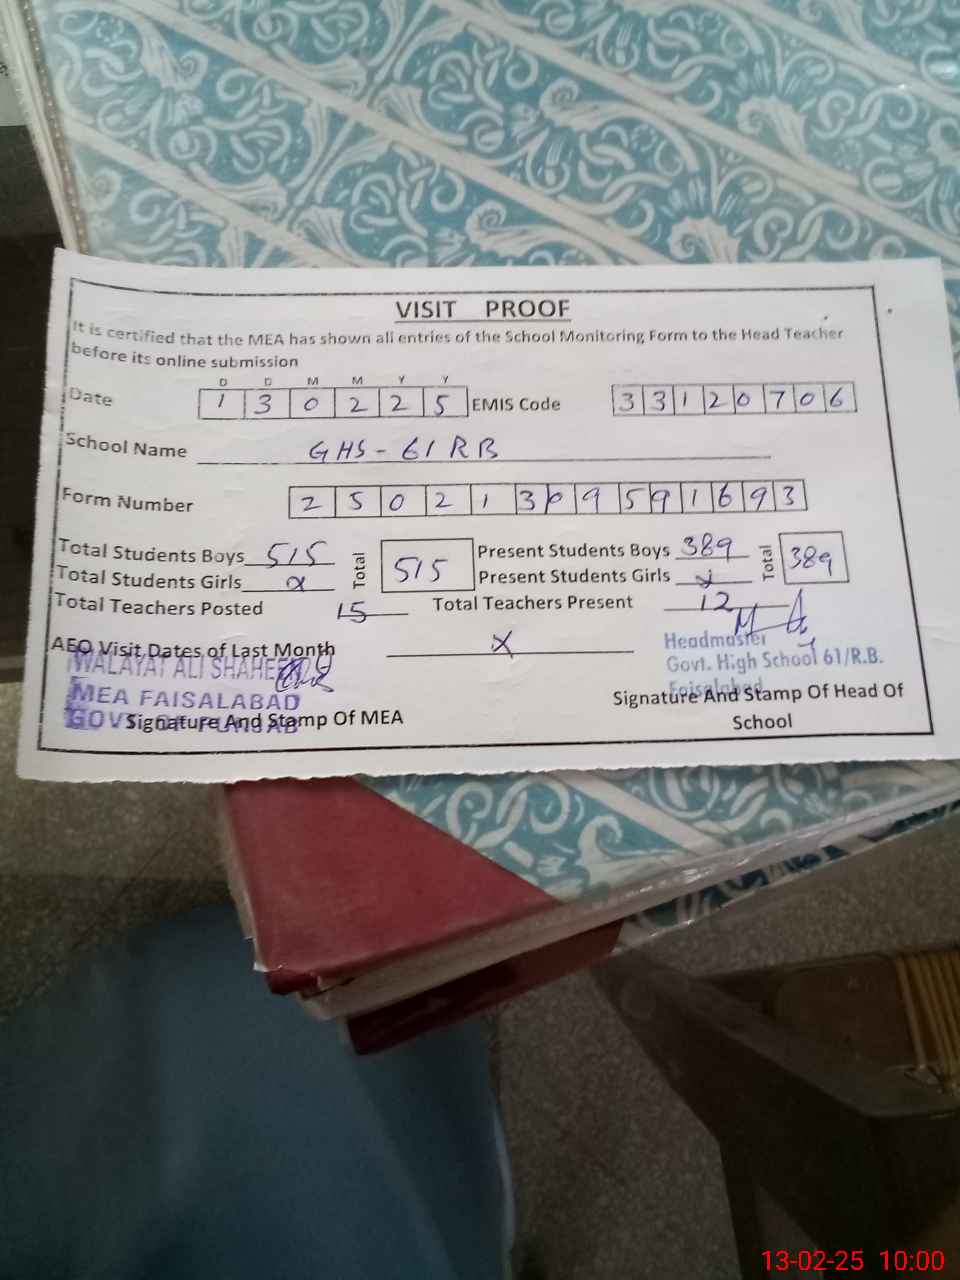 VISIT PROOF
It is certified that the MEA has shown all entries of the School Monitoring Form to the Head Teacher
before its online submission
D D M M Y Y
Date 1 3 0 2 2 5 EMIS Code 3 3 1 2 0 7 0 6
School Name GHS - 61 RB
Form Number 2 5 0 2 1 3 0 9 5 9 1 6 9 3
Total Students Boys 515 Total 515 Present Students Boys 389 Total 389
Total Students Girls x Present Students Girls x
Total Teachers Posted 15 Total Teachers Present 12
AEO Visit Dates of Last Month x
Headmaster
Govt. High School 61/R.B.
Faisalabad
WALAYAT ALI SHAHEED
MEA FAISALABAD
GOVT OF PUNJAB
Signature And Stamp Of MEA
Signature And Stamp Of Head Of
School
13-02-25 10:00